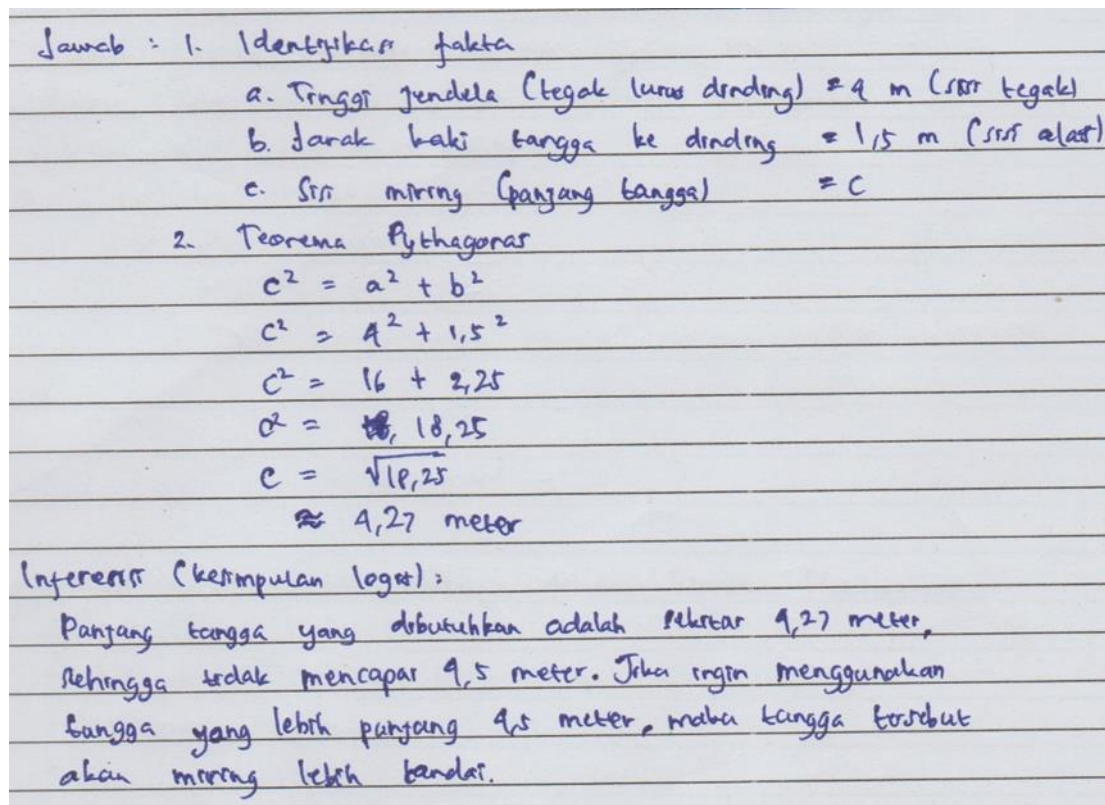 Jawab : 1. Identifikasi fakta
a. Tinggi jendela (tegak lurus dinding) = 4 m (sisi tegak)
b. Jarak kaki tangga ke dinding = 1,5 m (sisi alas)
c. Sisi miring (panjang tangga) = C
2. Teorema Pythagoras
c² = a² + b²
c² = 4² + 1,5²
c² = 16 + 2,25
c² = 18,25
c = √18,25
≈ 4,27 meter
Inferensi (kesimpulan logis) :
Panjang tangga yang dibutuhkan adalah sekitar 4,27 meter,
sehingga tidak mencapai 4,5 meter. Jika ingin menggunakan
tangga yang lebih panjang 4,5 meter, maka tangga tersebut
akan miring lebih landai.